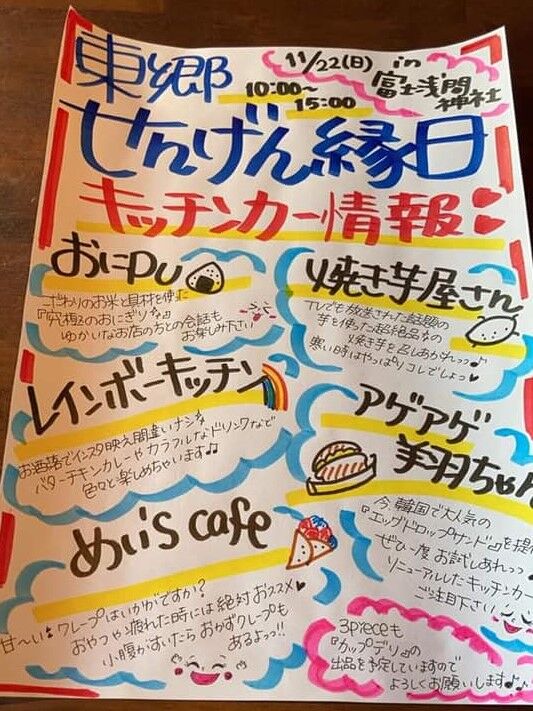 東郷
11/22(日) in
10:00〜
15:00
富士浅間
神社
せんげん縁日
キッチンカー情報
おにpu
こだわりのお米と具材を使た
『究極のおにぎり』
ゆかいなお店の方との会話も
お楽しみ下さい
焼き芋屋さん
TVでも放送された話題の
芋を使った超絶品の
焼き芋を召しあがれっっ♪
寒い時はやっぱりコレでしょっ♥
レインボーキッチン
お洒落でインスタ映え間違いナシ
バターチキンカレーやカラフルなドリンクなど
色々と楽しめちゃいます♫
アゲアゲ
翔ちゃん
今、韓国で大人気の
『エッグドロップサンド』を提
ぜひ一度お試しあれっっ♪
リニューアルしたキッチンカー
ご注目下さい
めい's cafe
甘〜いクレープはいかがですか?
おやつや疲れた時には絶対おススメ♥
小腹がすいたらおかずクレープも
あるよっっ!!
3pieceも
『カップデリ』の
出品を予定していますので
よろしくお願いします♪♪